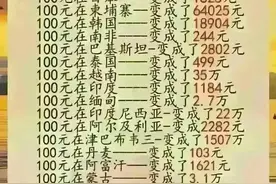 100元在柬埔寨——变成了64025元
100元在韩国————变成了18904元
100元在南非——变成了244元
100元在巴基斯坦-变成了2802元
100元在泰国————变成了499元
100元在越南————变成了35万
100元在印度————变成了1184元
100元在缅甸————变成了2.7万
100元在印度尼西亚-变成了22万
100元在阿尔及利亚-变成了2282元
100元在津巴布韦三-变成了1507万
100元在丹麦————变成了103元
100元在阿富汗——变成了1621元
100元在蒙古————变成了3.1万